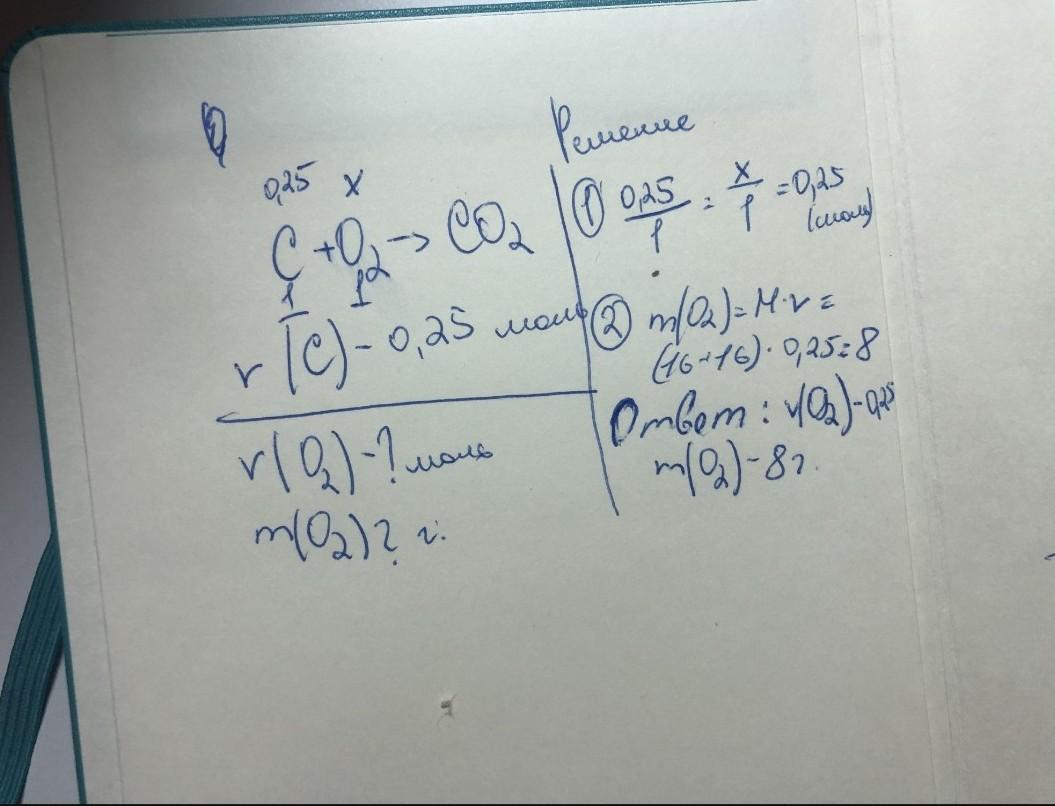 0,25 x
C + O₂ → CO₂
1 1
ν(C) - 0,25 моль
ν(O₂) - ? моль
m(O₂) ? г.
Решение
① 0,25/1 = x/1 = 0,25
(моль)
② m(O₂) = M·ν =
(16+16)·0,25=8
Ответ: ν(O₂) - 0,25
m(O₂) - 8 г.